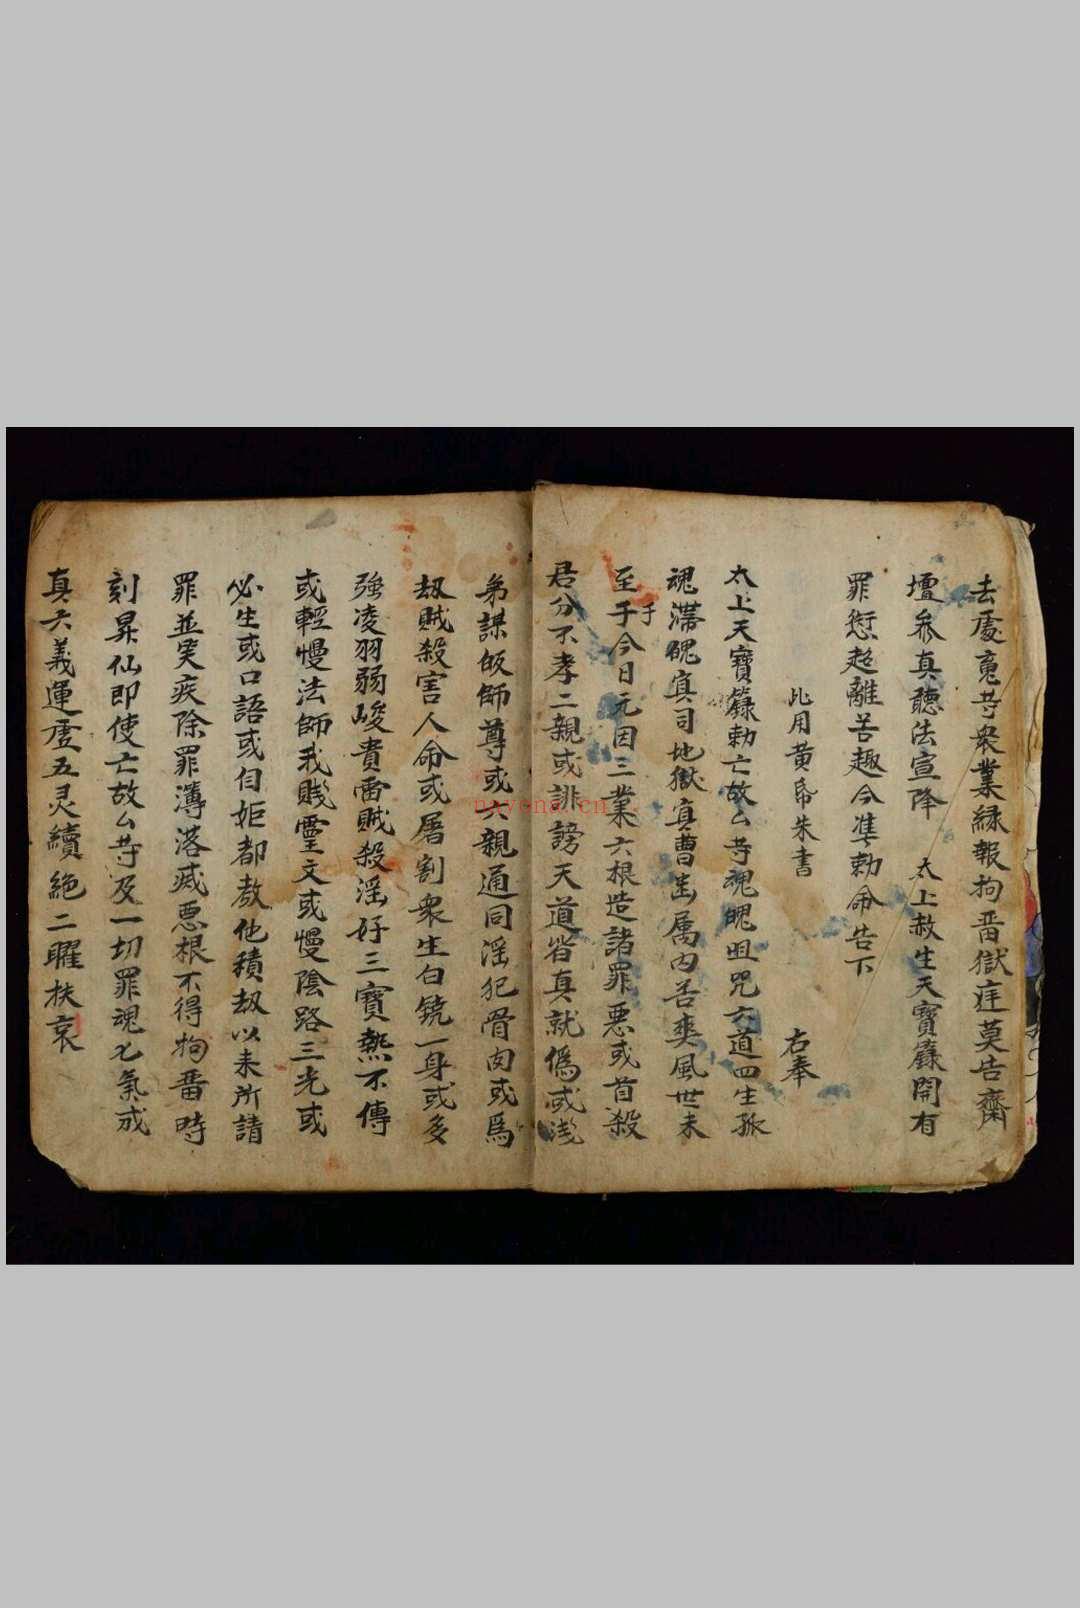 去處寃䒭衆業緣報拘畨獄庭莫告齋
壇叅真聽法宣降 太上赦生天寶籙開有
罪愆超離苦趣今準勅命告下
比用黄帋朱書 右奉
太上天寶籙勅亡故厶䒭魂魄咀咒六道四生孤
魂滯魄寘司地獄真曹出属内苦爽風世未
至于今日元因三業六根造諸罪悪或首殺
于
君分不孝二親或誹謗天道省真就僞或淺
弟謀皈師尊或六親通同淫犯骨肉或爲
刼贼殺害人命或屠割衆生白鐃一身或多
強凌羽弱峻貴雷贼殺淫好三寶㷱不傳
或輕慢法師我賤靈文或慢陰路三光或
必生或口語或自妬都敖他積刼以未所請
罪並災疾除罪簿落滅悪根不得拘畨時
刻昇仙即使亡故厶䒭及一切罪魂七氣成
真六義運虗五灵續絶二曜扶哀
nayona.cn